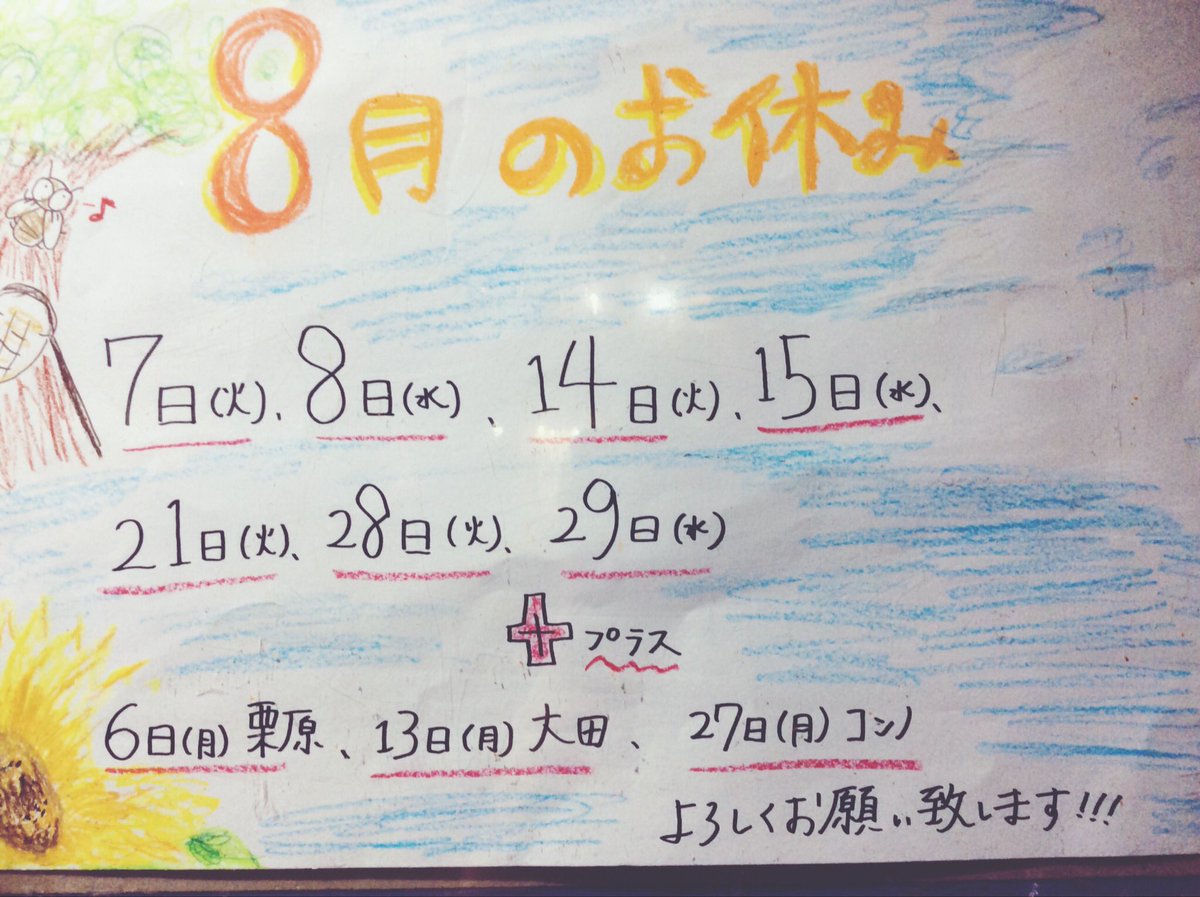 8月のお休み
7日(火)、8日(水)、14日(火)、15日(水)、
21日(火)、28日(火)、29日(水)
プラス
6日(月)栗原、13日(月)大田、27日(月)コンノ
よろしくお願い致します!!!